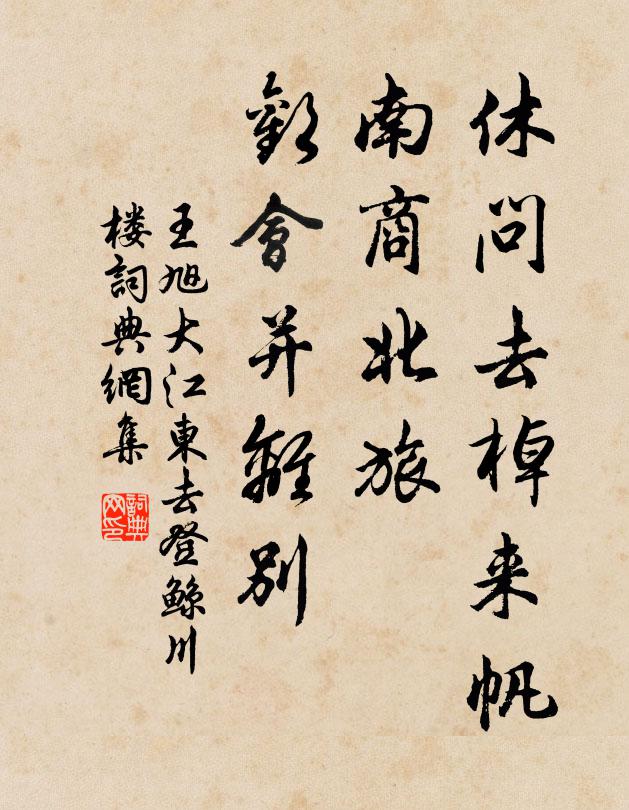 休問去棹来帆
南商北旅
歡會并離別
王旭大江東去登鲸川
楼詞典網集
詞典
网印